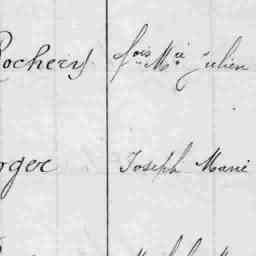 Rochery fois Mie Julien
rger Joseph Marie